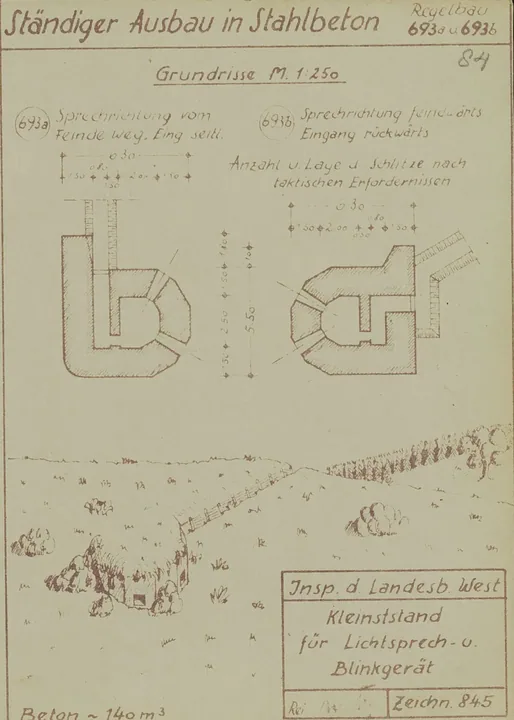 Ständiger Ausbau in Stahlbeton
Regelbau
693a u 693b
84
Grundrisse M. 1:250
693a Sprechrichtung vom
Feinde weg. Eing seitl.
693b Sprechrichtung feindwärts
Eingang rückwärts
Anzahl u. Lage d. Schlitze nach
taktischen Erfordernissen
5.50
Insp. d. Landesb. West
Kleinststand
für Lichtsprech- u.
Blinkgerät
Zeichn. 845
Beton ~ 140 m³